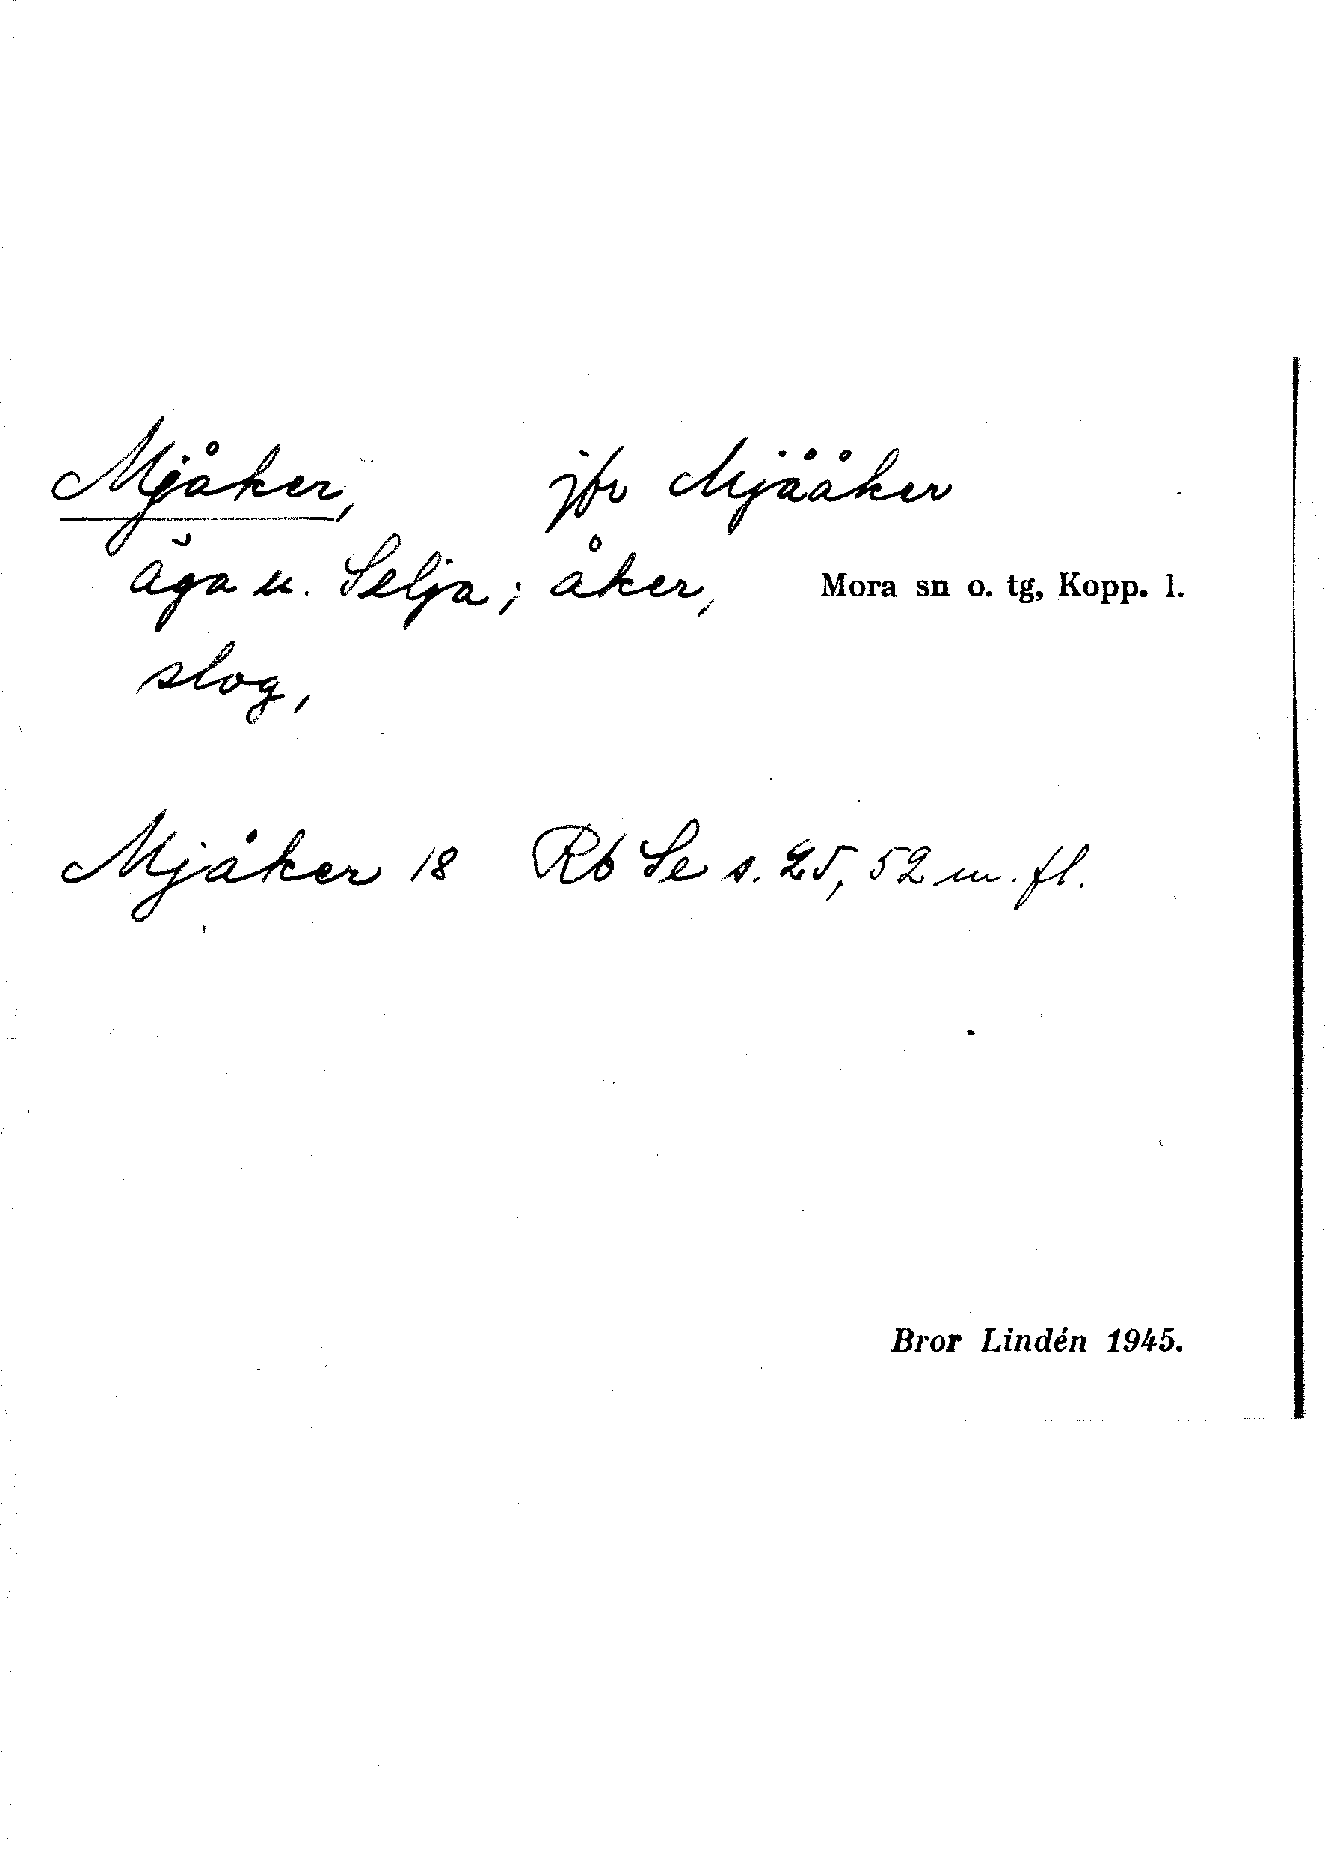 Mjåker, jfr Mjååker
äga u. Selja; åker, Mora sn o. tg, Kopp. l.
slog,
Mjåker 18 Rb Se s. 25, 52 m. fl.
Bror Lindén 1945.